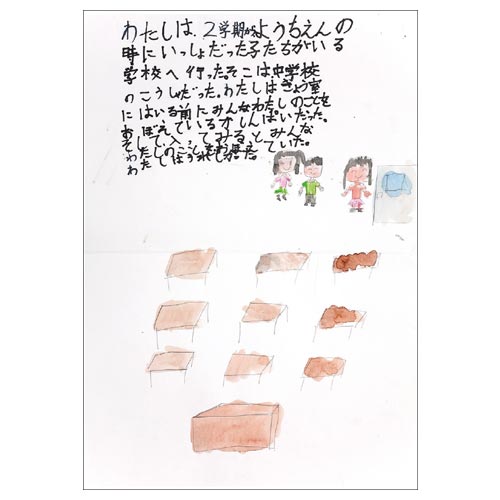 わたしは、2学期からようちえんの
時にいっしょだった子たちがいる
学校へ行ったそこは中学校
のこうしゃだった。わたしはきょう室
にはいる前にみんなわたしのことを
おぼえているかしんぱいだった。
そして、入ってみるとみんな
わたしのことを ていた。
わたしは